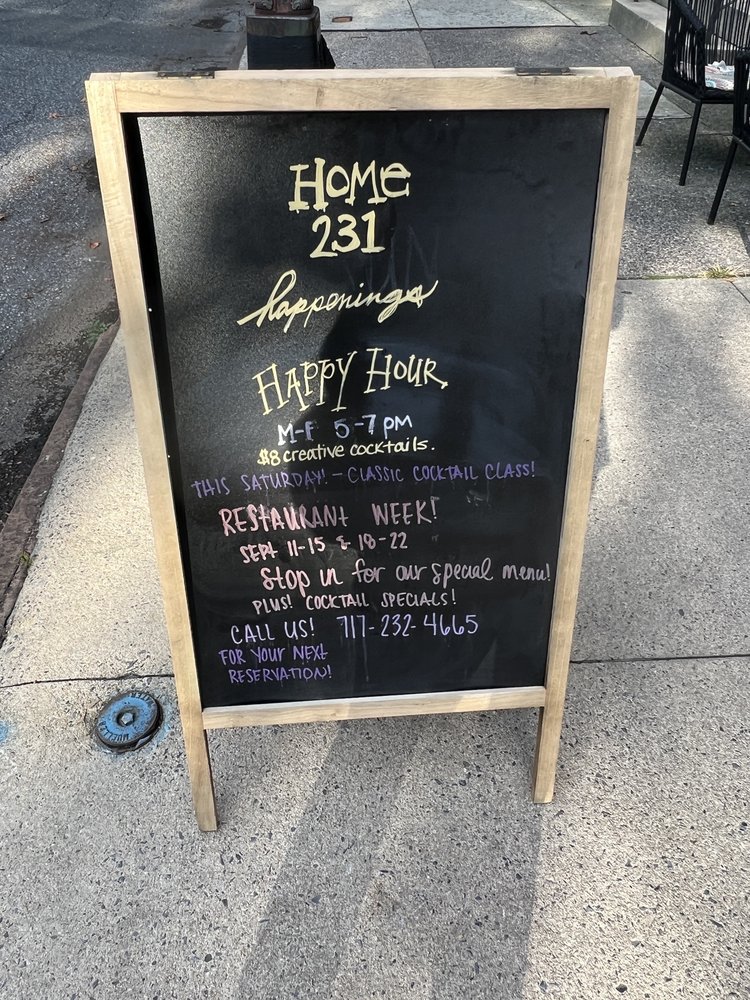 HOME
231
happenings
HAPPY HOUR
M-F 5-7 PM
$8 creative cocktails.
THIS SATURDAY! - CLASSIC COCKTAIL CLASS!
RESTAURANT WEEK!
SEPT 11-15 & 18-22
Stop in for our special menu!
PLUS! COCKTAIL SPECIALS!
CALL US! 717-232-4665
FOR YOUR NEXT
RESERVATION!